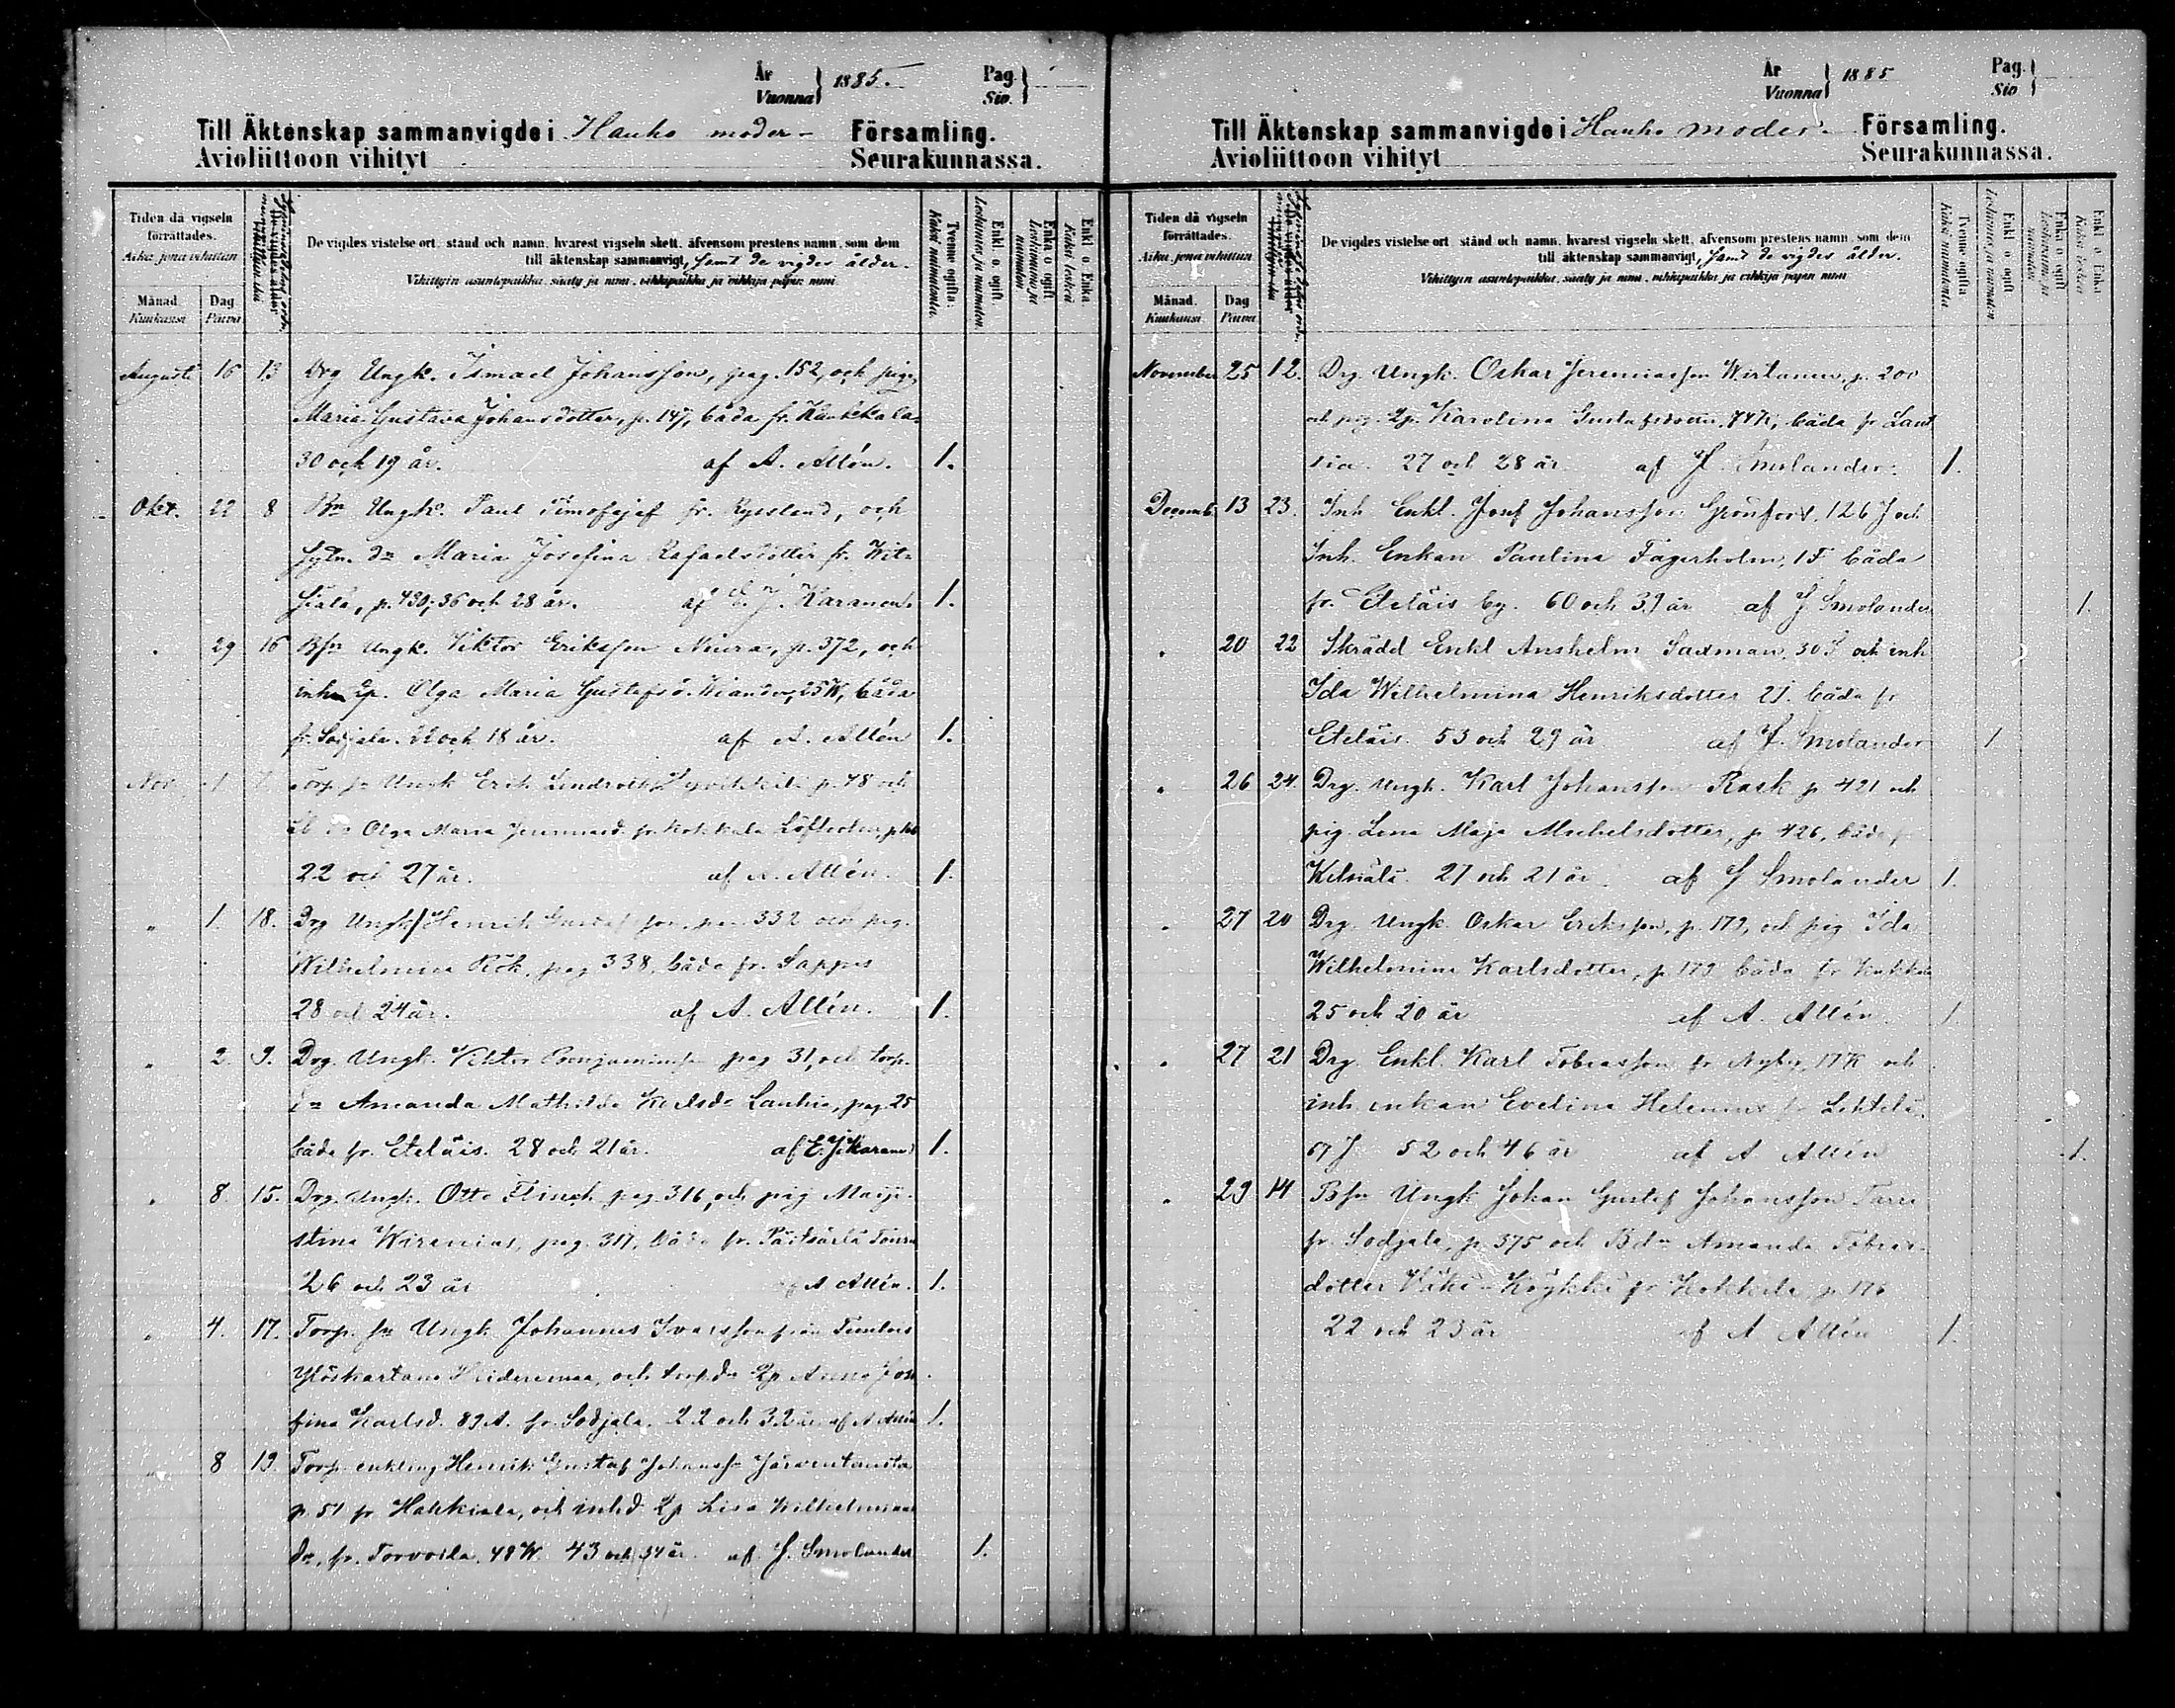 År
Vuonna } 1885.
Pag.
Siv. }
Till Äktenskap sammanvigde i Hauho moder- Församling.
Avioliittoon vihityt Seurakunnassa.
Tiden då vigseln förrättades.
Aika, jona vihittiin
Månad.
Kuukausi
Dag
Päivä
De vigdes vistelse ort, stånd och namn, hvarest vigseln skett, äfvensom prestens namn, som dem
till äktenskap sammanvigt, samt de vigdes ålder.
Vihittyin asuntopaikka, sääty ja nimi, vihkipaikka ja vihkijä papin nimi
Tvenne ogifta:
Kaksi naimatonta.
Enkl. o. ogift.
Leskimies ja naimaton.
Enka o ogift
Leskivaimo ja naimaton
Enkl o Enka
Kaksi leskeä
Augusti 16 13 Drg Ungk. Ismael Johansson, pag. 152, och pig.
Maria Gustava Johansdotter, p. 147, båda fr. Kaukkala.
30 och 19 år. af A. Allén. 1.
Okt. 22 8 Bn Ungk. Paul Timofejef fr. Ryssland, och
dr Maria Josefina Rafaelsdotter fr. Wit-
siala, p. 430; 36 och 28 år. af E. J. Karanen. 1.
" 29 16 Bsn Ungk. Viktor Eriksson Niura, p. 372, och
inh Qp. Olga Maria Gustafsd. Kiander, 25 K, båda
fr. Sodjala. 22 och 18 år. af A. Allén 1.
Nov. 1 7. Torp. sn Ungk Erik Lindroth p. 48 och
dr Olga Maria fr. Kokkala
22 och 27 år. af A. Allén. 1.
" 1. 18. Drg Ungk Henrik Gustafsson, pag 332 och pig.
Wilhelmina Rök, pag 338, båda fr. Sappes
28 och 24 år. af A. Allén. 1.
" 2. 9. Drg. Ungk. Viktor Benjaminsson pag 31, och torp.
dr Amanda Mathilda Karlsdr Lauhia, pag 25
båda fr. Eteläis. 28 och 21 år. af E. J. Karanen 1.
" 8. 15. Drg. Ungk. Otto Flinck pag. 316, och pig Maja
Stina Wirenius, pag. 317, båda fr.
26 och 23 år af A Allén. 1.
" 4. 17. Torp. sn Ungk Johannes Ivarsson från Tuulois
och torp.dr Qp Anna Jose
fina Karlsd. 89 A. fr. Sodjala. 22 och 32 år af A Allén 1.
" 8 19. Torp enkling Henrik Gustaf Johanssn Järventausta
p. 51 fr Hahkiala, och inh.d Qp Lisa Wilhelmina
dr, fr. Torvoila, 48 W. 43 och 34 år. af J. Smolander 1.
År
Vuonna } 1885
Pag.
Siv }
Till Äktenskap sammanvigde i Hauho moder- Församling.
Avioliittoon vihityt Seurakunnassa.
Tiden då vigseln förrättades.
Aika, jona vihittiin
Månad.
Kuukausi
Dag
Päivä
De vigdes vistelse ort, stånd och namn, hvarest vigseln skett, äfvensom prestens namn, som dem
till äktenskap sammanvigt, samt de vigdes ålder.
Vihittyin asuntopaikka, sääty ja nimi, vihkipaikka ja vihkijä papin nimi
Tvenne ogifta
Kaksi naimatonta
Enkl o ogift
Leskimies ja naimaton
Enka o ogift
Leskivaimo ja naimaton
Enkl o Enka
Kaksi leskeä
November 25 12. Drg. Ungk. Oskar Jeremiasson Wirtanen, p. 200
och pig. Qp. Karolina Gustafsdotter, 74 K, båda fr Laut
sia. 27 och 28 år af J. Smolander. 1.
Decemb. 13 23. Inh Enkl. Josef Johansson Grönfors, 126 J och
Inh. Enkan Paulina Fagerholm, 1 F båda
fr. Eteläis by. 60 och 39 år af J Smolander 1.
" 20 22 Skrädd Enkl Anshelm Saxman, 30 S och inh
Ida Wilhelmina Henriksdotter 2 J. båda fr
Eteläis. 53 och 29 år af J. Smolander 1
" 26 24. Drg. Ungk. Karl Johansson Rask p 421 och
pig. Lena Maja Michelsdotter, p 426, båda fr
Witsiala. 27 och 21 år. af J Smolander 1.
" 27 20 Drg. Ungk. Oskar Eriksson, p. 179, och pig Ida
Wilhelmina Karlsdotter, p 179 båda fr Kokkala
25 och 20 år af A. Allén. 1.
" 27 21 Drg. Enkl. Karl Tobiasson fr Nyby, 17 K och
inh. enkan Evelina Helenius fr Lehtelä.
67 J 52 och 46 år af A Allén 1.
" 29 14 Bsn Ungk Johan Gustaf Johansson Tarri
fr. Sodjala, p. 375 och B.dr Amanda Tobias-
dotter Vähä-Köykkä fr Kokkala, p. 176
22 och 23 år af A Allén 1.